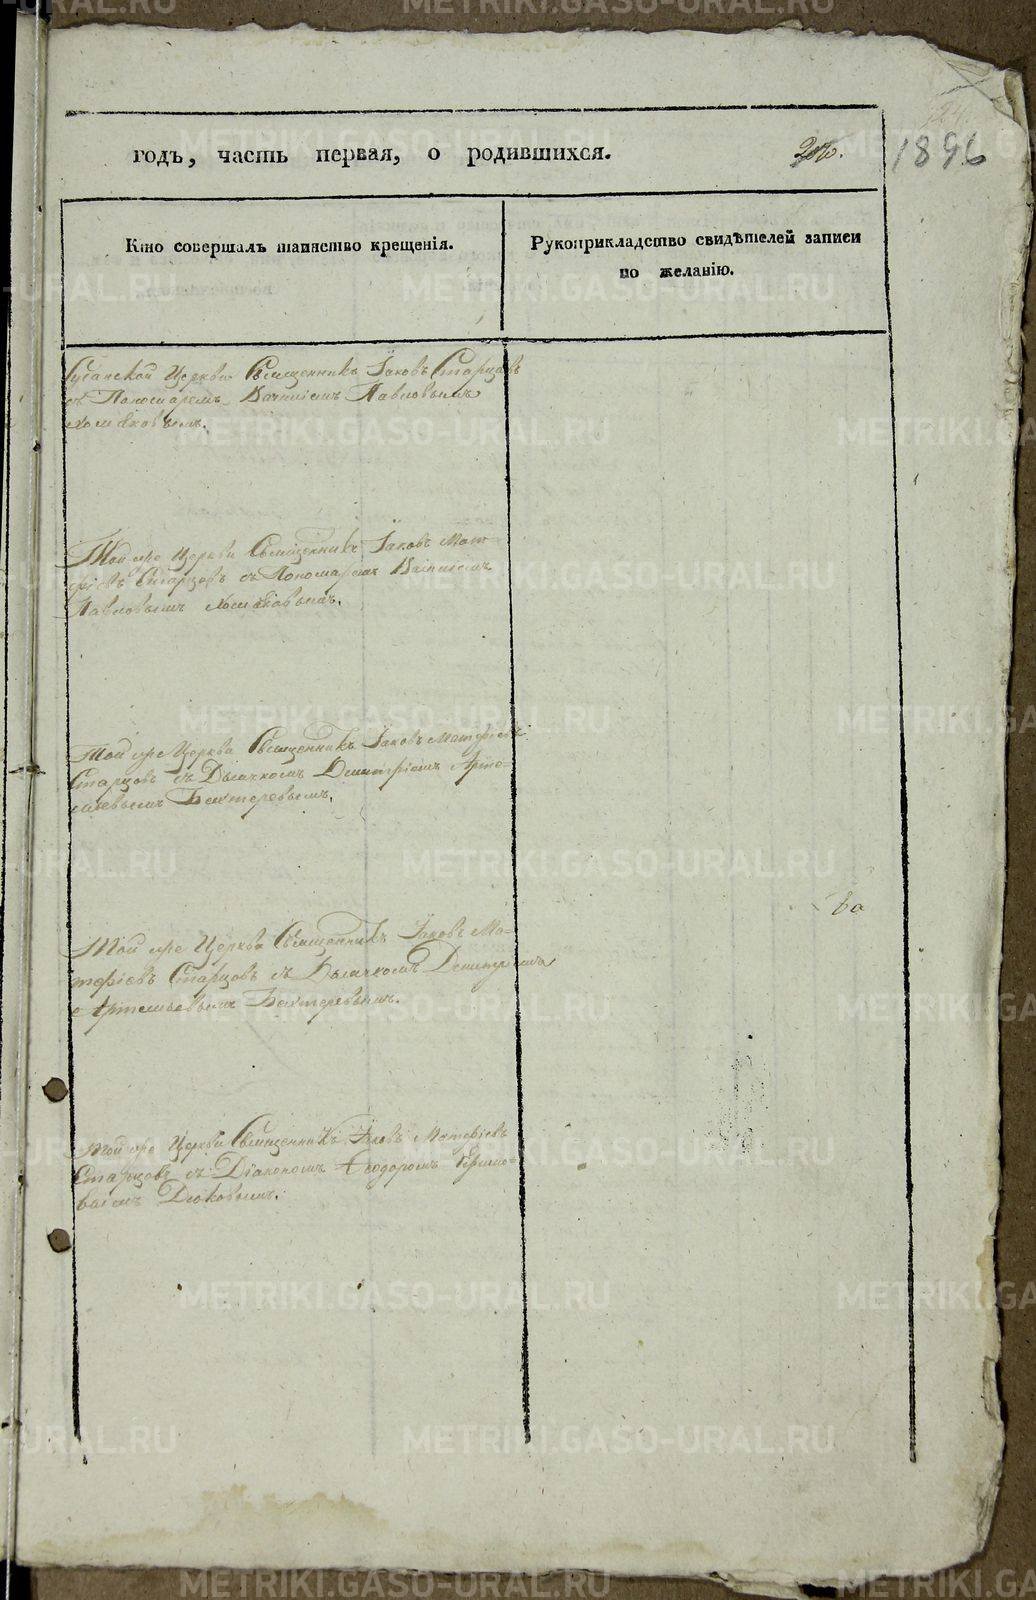 годъ, часть первая, о родившихся.
1896
Кто совершалъ таинство крещенія.
Рукоприкладство свидѣтелей записи
по желанію.
Церкви Священникъ Іаковъ Старцовъ
съ Пономаремъ Павловымъ
Хомяковымъ.
Той же Церкви Священникъ Іаковъ Мат-
фіевъ Старцовъ съ Пономаремъ
Павловымъ Хомяковымъ.
Той же Церкви Священникъ Іаковъ Матфіевъ
Старцовъ съ Дьячкомъ Димитріемъ Арте-
міевымъ Бехтеревымъ.
Той же Церкви Священникъ Іаковъ Ма-
тфіевъ Старцовъ съ Дьячкомъ Димитріемъ
Артемьевымъ Бехтеревымъ.
Той же Церкви Священникъ Іаковъ Матфіевъ
Старцовъ съ Діакономъ Ѳеодоромъ
Дюковымъ.
METRIKI.GASO-URAL.RU